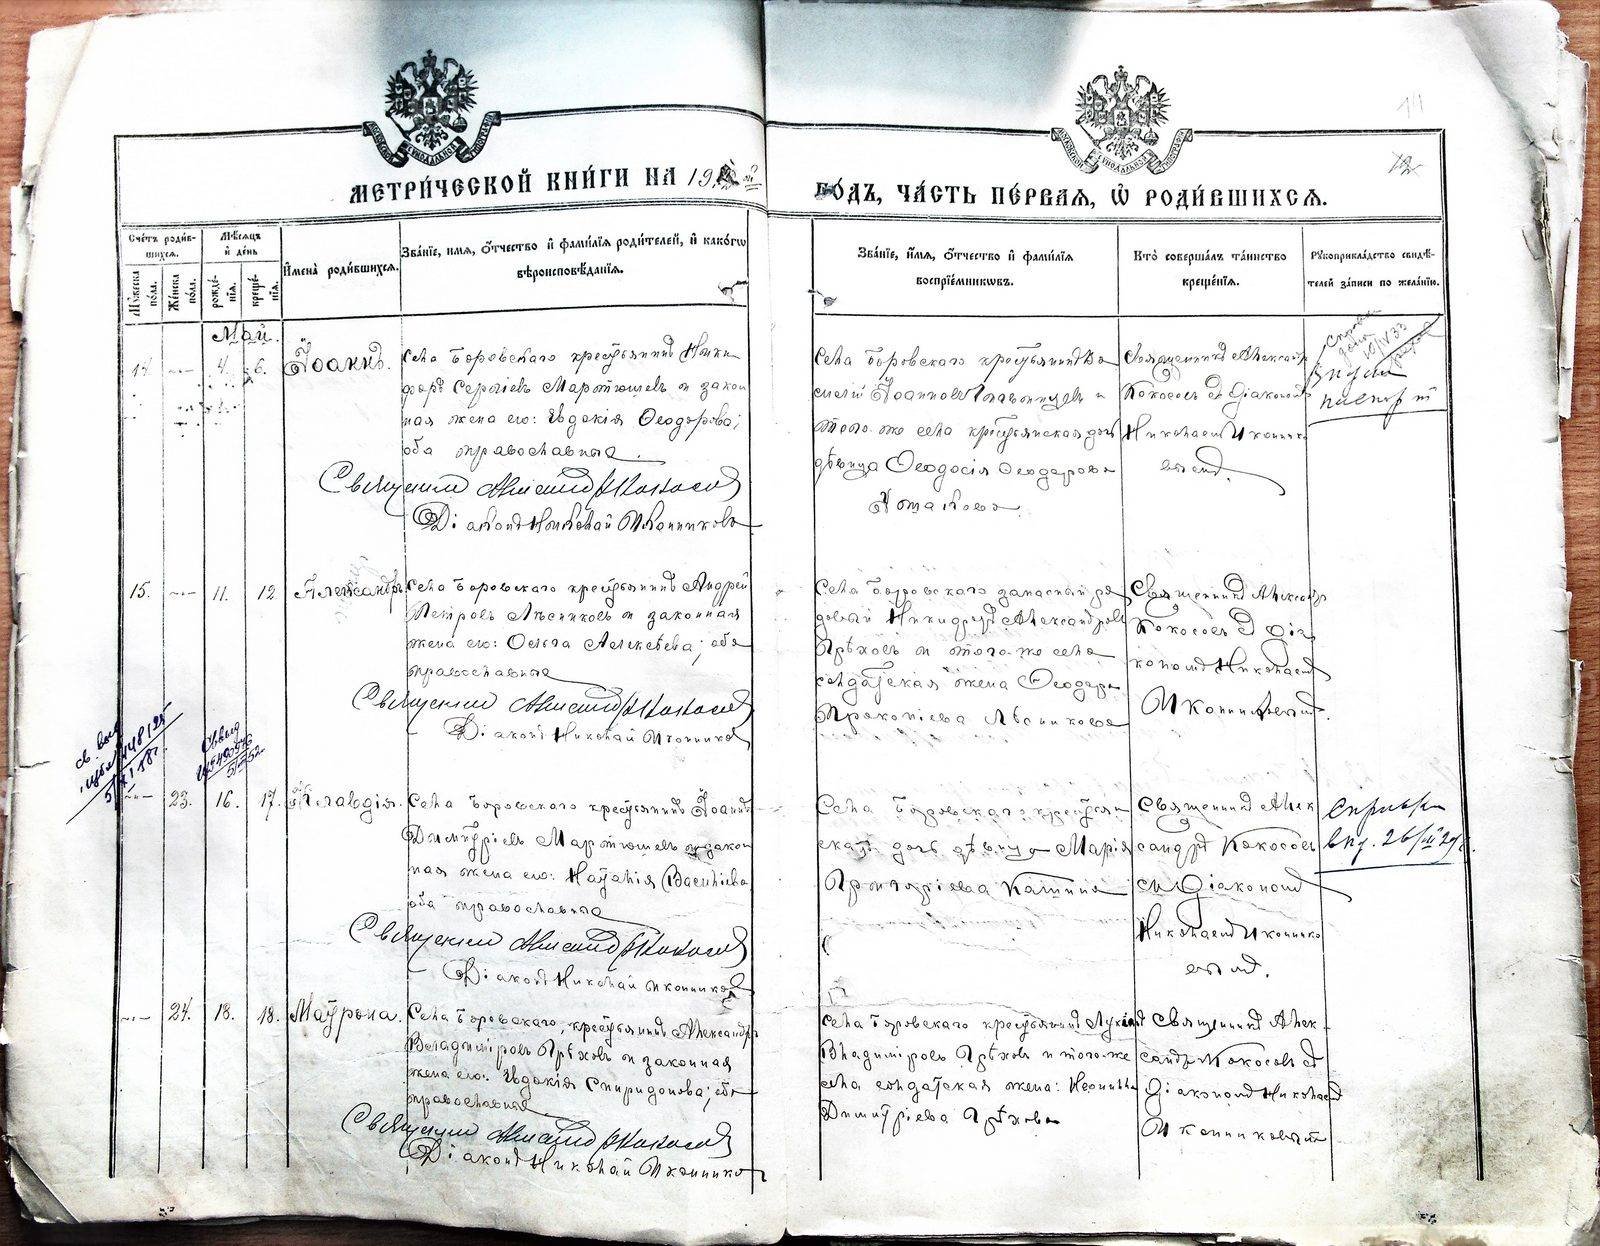 МЕТРИ́ЧЕСКОЙ КНИ́ГИ НА 19
ГО́ДЪ, ЧА́СТЬ ПЕ́РВАЯ, Ѿ РОДИ́ВШИХСЯ.
Сче́тъ роди́в-
шихся.
Му́жеска
по́ла.
Же́нска
по́ла.
Мѣ́сяцъ
и҆ де́нь
рожде́-
нїя.
креще́-
нїя.
И҆мена̀ роди́вшихся.
Зва́нїе, и҆мя, ѻ҆́тчество и҆ фами́лїя роди́телей, и҆ како́гѡ
вѣроисповѣ́данїя.
Зва́нїе, и҆́мя, ѻ҆́тчество и҆ фами́лїя
воспрїе́мникѡвъ.
Кто̀ соверша́лъ та́инство
креще́нїя.
Рꙋкоприкла́дство свидѣ́-
телей за́писи по жела́нїю.
Май.
14 4. 6. Іоаннъ.
Села Боровскаго крестьянинъ Ники
форъ Сергіевъ Мартюшевъ и закон
ная жена его: Евдокія Ѳеодорова;
оба православные.
Священникъ Александръ Кокосовъ
Діаконъ Николай Иконниковъ
Села Боровскаго крестьянинъ Ва
силій Іоанновъ и
того же села крестьянская дочь
дѣвица Ѳеодосія Ѳеодорова
Священникъ Александръ
Кокосовъ съ діакономъ
Николаемъ Иконнико
вымъ.
паспорт
15. 11. 12. Александръ.
Села Боровскаго крестьянинъ Андрей
Петровъ Лѣсниковъ и законная
жена его: Ольга Алексѣева; оба
православные
Священникъ Александръ Кокосовъ
Діаконъ Николай Иконниковъ
Села Боровскаго запасный ря
довый Никифоръ Александровъ
Грѣховъ и того-же села
солдатская жена Ѳеодора
Прокопіева Лѣсникова
Священникъ Александръ
Кокосовъ съ діа
кономъ Николаемъ
Иконниковымъ.
23. 16. 17. Клавдія.
Села Боровскаго крестьянинъ Іоаннъ
Димитріевъ Мартюшевъ и закон
ная жена его: Наталія Васильева
оба православные
Священникъ Александръ Кокосовъ
Діаконъ Николай Иконниковъ
Села Боровскаго крестьян
ская дочь дѣвица Марія
Григоріева Кашина
Священникъ Алек
сандръ Кокосовъ
съ Діакономъ
Николаемъ Иконнико
вымъ.
справка
выд. 26/III 29г.
24. 13. 18. Маѵрона.
Села Боровскаго, крестьянинъ Александръ
Владиміровъ Грѣховъ и законная
жена его: Евдокія Спиридонова; оба
православные
Священникъ Александръ Кокосовъ
Діаконъ Николай Иконников
Села Боровскаго крестьянинъ Лукіанъ
Владиміровъ Грѣховъ и того-же
села солдатская жена: Неонилла
Димитріева Грѣхова
Священникъ Алек-
сандръ Кокосовъ съ
Діакономъ Николаемъ
Иконниковымъ